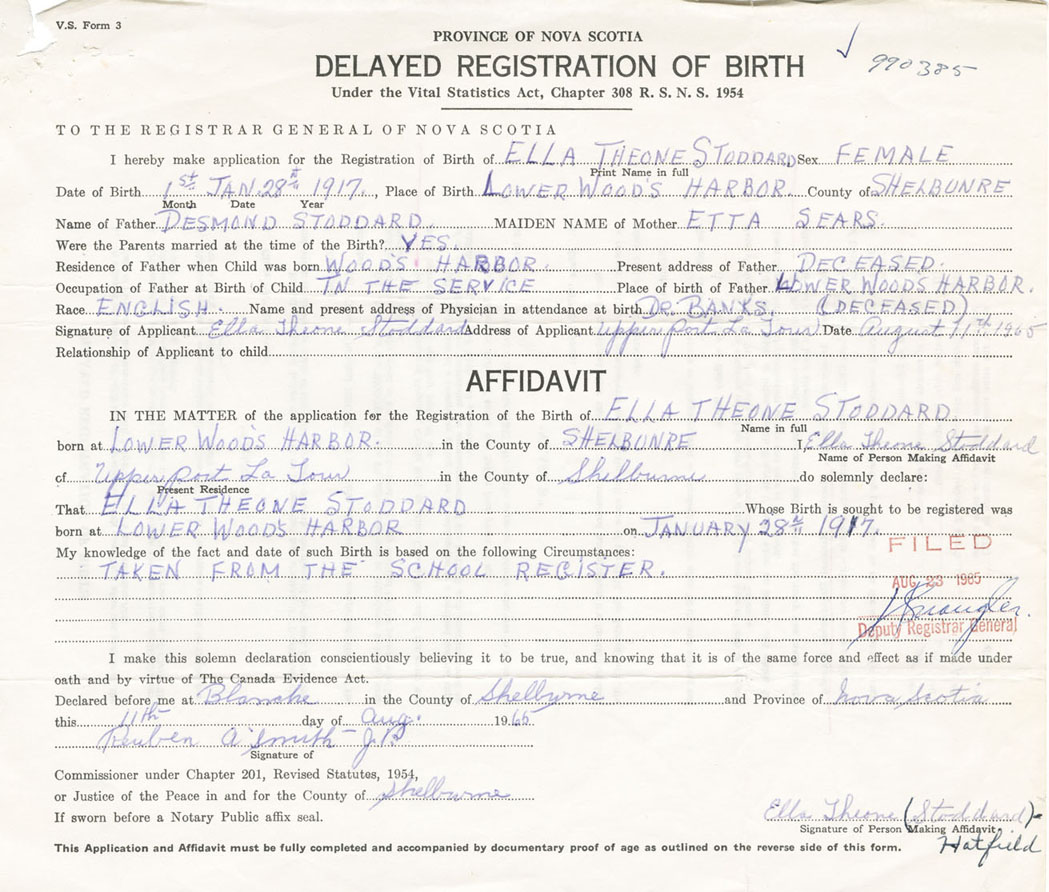 V.S. Form 3
PROVINCE OF NOVA SCOTIA
DELAYED REGISTRATION OF BIRTH
990385
Under the Vital Statistics Act, Chapter 308 R. S. N. S. 1954
TO THE REGISTRAR GENERAL OF NOVA SCOTIA
I hereby make application for the Registration of Birth of ELLA THEONE STODDARD Sex FEMALE
Print Name in full
Date of Birth 1st JAN. 28th 1917., Place of Birth LOWER WOOD'S HARBOR County of SHELBUNRE
Month Date Year
Name of Father DESMOND STODDARD. MAIDEN NAME of Mother ETTA SEARS.
Were the Parents married at the time of the Birth? YES.
Residence of Father when Child was born WOOD'S HARBOR. Present address of Father DECEASED.
Occupation of Father at Birth of Child IN THE SERVICE Place of birth of Father LOWER WOODS HARBOR.
Race ENGLISH. Name and present address of Physician in attendance at birth DR. BANKS. (DECEASED)
Signature of Applicant Ella Theone Stoddard Address of Applicant Upper Port La Tour Date August 11th 1965
Relationship of Applicant to child
AFFIDAVIT
IN THE MATTER of the application for the Registration of the Birth of ELLA THEONE STODDARD
Name in full
born at LOWER WOOD'S HARBOR. in the County of SHELBUNRE I, Ella Theone Stoddard
Name of Person Making Affidavit
of Upper Port La Tour in the County of Shelburne do solemnly declare:
Present Residence
That ELLA THEONE STODDARD Whose Birth is sought to be registered was
born at LOWER WOOD'S HARBOR on JANUARY 28th 1917.
My knowledge of the fact and date of such Birth is based on the following Circumstances:
FILED
TAKEN FROM THE SCHOOL REGISTER.
AUG 23 1965
Deputy Registrar General
I make this solemn declaration conscientiously believing it to be true, and knowing that it is of the same force and effect as if made under
oath and by virtue of The Canada Evidence Act.
Declared before me at Blanche in the County of Shelburne and Province of Nova Scotia
this 11th day of Aug. 1965
Reuben A Smith J.P.
Signature of
Commissioner under Chapter 201, Revised Statutes, 1954,
or Justice of the Peace in and for the County of Shelburne
If sworn before a Notary Public affix seal.
Ella Theone (Stoddard)-
Signature of Person Making Affidavit
Hatfield
This Application and Affidavit must be fully completed and accompanied by documentary proof of age as outlined on the reverse side of this form.